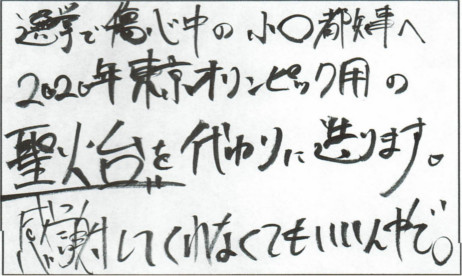 選挙で傷心中の小〇都知事へ
2020年東京オリンピック用の
聖火台を代わりに送ります。
感謝してくれなくてもいいんやぞ。